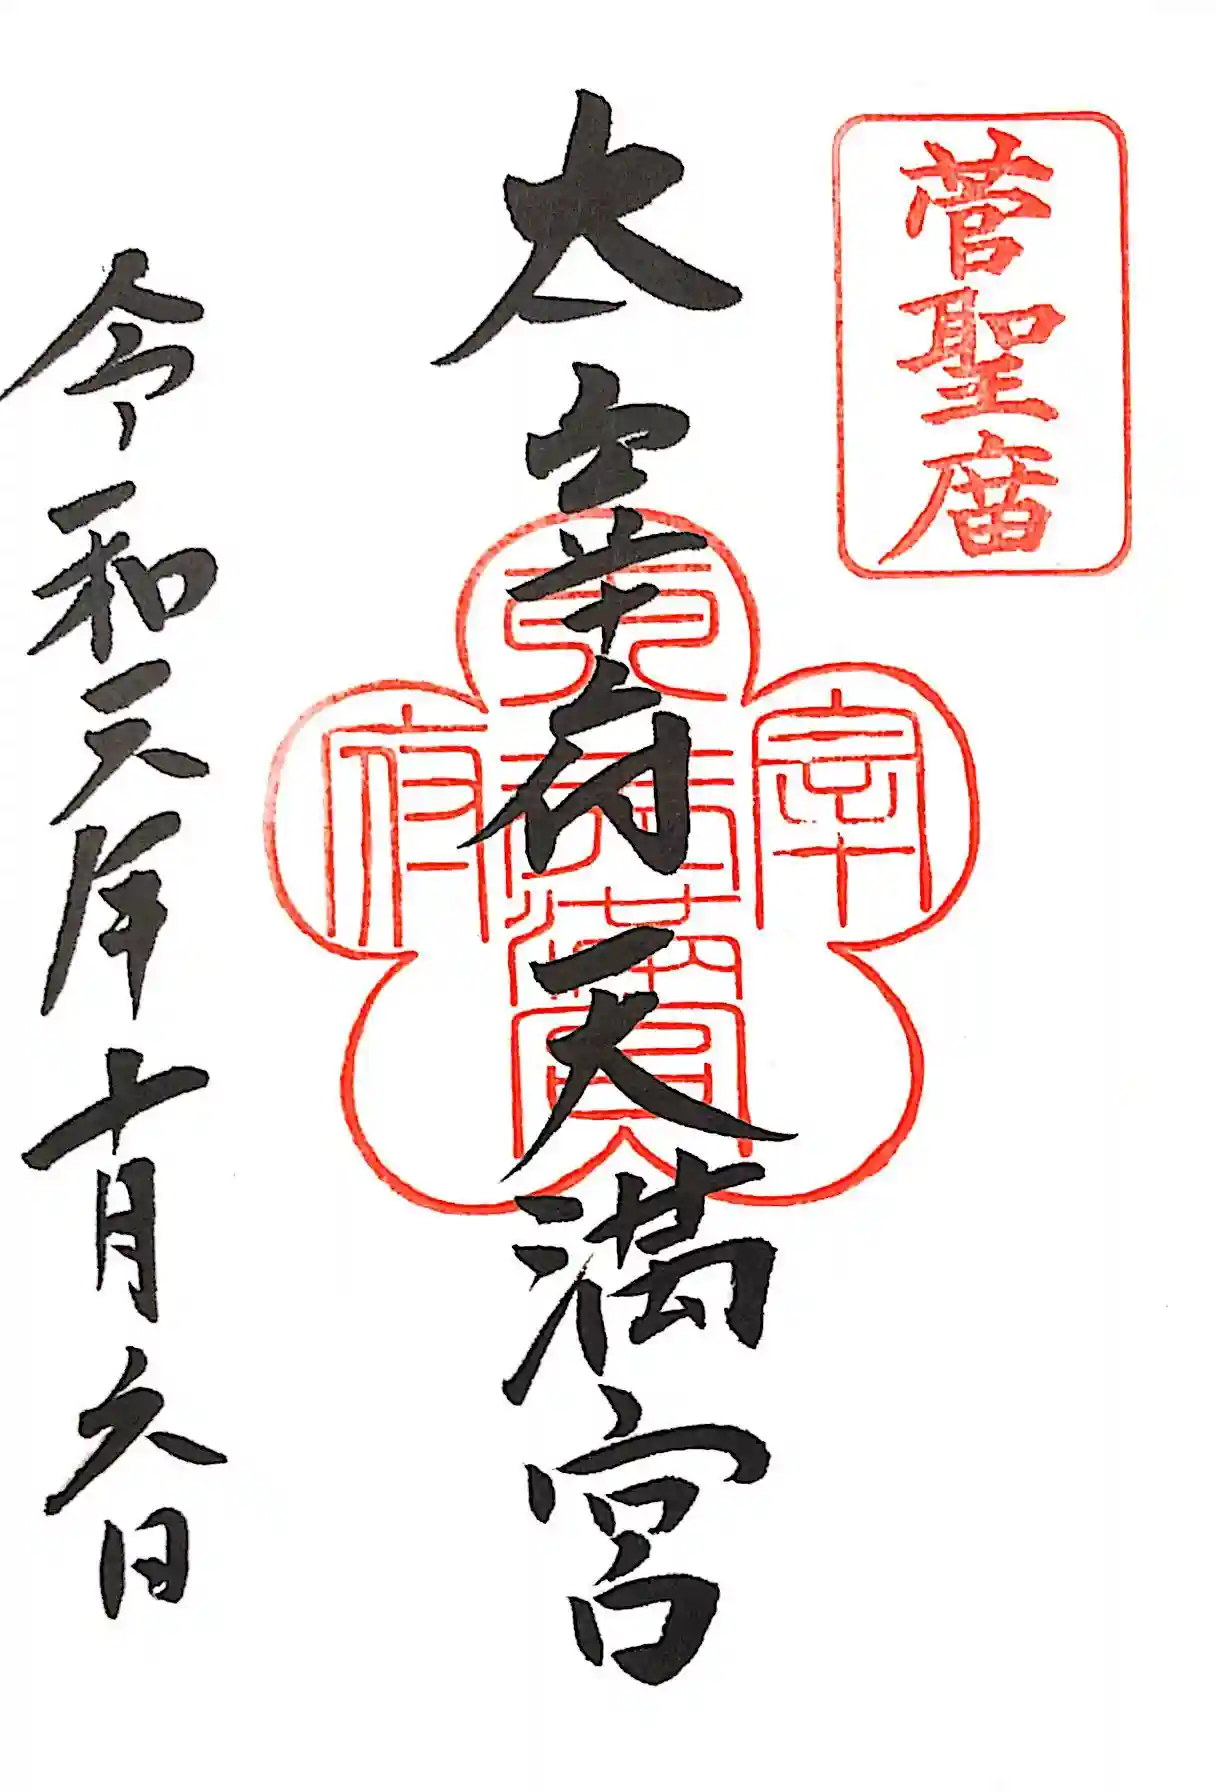 菅聖庿
太宰府天満宮
太宰府天満宮
令和元年十月 日